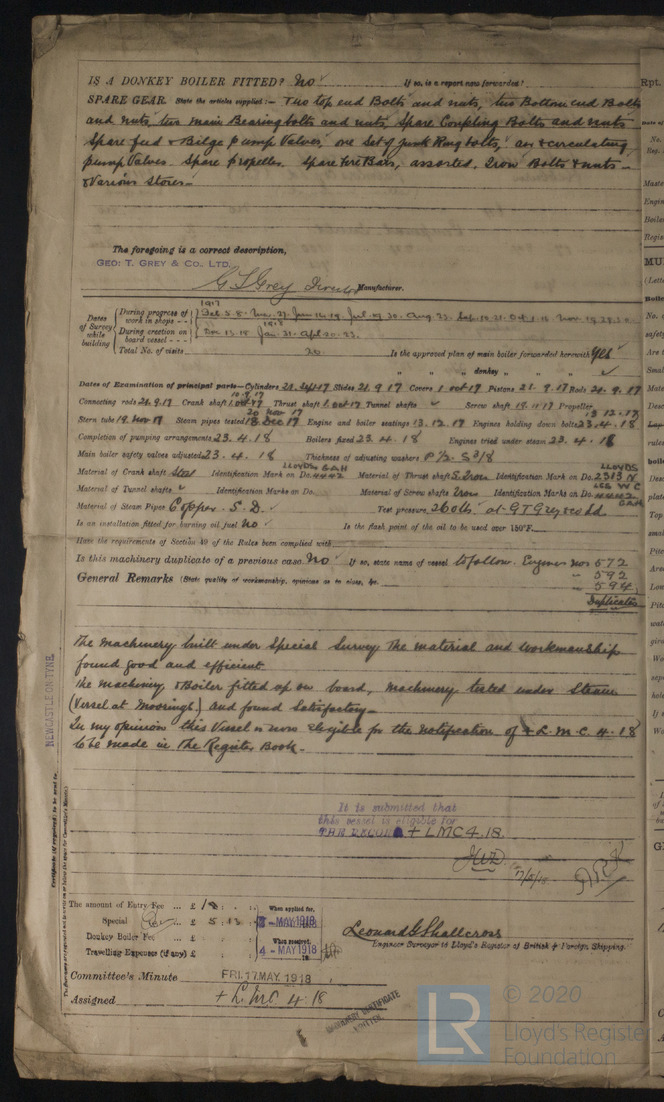 IS A DONKEY BOILER FITTED? No If so, is a report now forwarded?
SPARE GEAR. State the articles supplied:— Two top end Bolts and nuts, two Bottom end Bolts
and nuts, two main Bearing bolts and nuts, Spare Coupling Bolts and nuts
Spare feed & Bilge pump Valves, one Set of junk Ring bolts, air & circulating
pump Valves. Spare propeller. Spare Fire Bars, assorted, Iron Bolts & nuts –
& Various Stores –
The foregoing is a correct description,
GEO: T. GREY & CO. LTD.
G T Grey Director Manufacturer.
Dates of Survey while building
1917
During progress of work in shops - -
During erection on board vessel - - -
1918
Total No. of visits 20 Is the approved plan of main boiler forwarded herewith Yes
" " " donkey " " "
Dates of Examination of principal parts—Cylinders 21. Sept 17 Slides 21. 9 17 Covers 1 oct 17 Pistons 21. 9. 17 Rods 21. 9. 17
Connecting rods 21.9.17 Crank shaft Thrust shaft 1. oct 17 Tunnel shafts Screw shaft 19. 11 17 Propeller 13 12. 17
Stern tube 19. Nov 17 Steam pipes tested 20 Nov 17 18 Dec 17 Engine and boiler seatings 13. 12. 17 Engines holding down bolts 23. 4. 18
Completion of pumping arrangements 23. 4. 18 Boilers fixed 23. 4. 18 Engines tried under steam 23. 4. 18
Main boiler safety valves adjusted 23. 4. 18 Thickness of adjusting washers P 1/2 S 3/8
Material of Crank shaft Steel Identification Mark on Do. LLOYDS 4442 GAH Material of Thrust shaft S. Iron Identification Mark on Do. LLOYDS 2313 N
Material of Tunnel shafts Identification Marks on Do. Material of Screw shafts Iron Identification Marks on Do. 4442 GAH
Material of Steam Pipes Copper. S. D. Test pressure 260 lbs at G T Grey & co Ld
Is an installation fitted for burning oil fuel No Is the flash point of the oil to be used over 150°F.
Have the requirements of Section 49 of the Rules been complied with
Is this machinery duplicate of a previous case No If so, state name of vessel to follow. Engines Nos 572
" 592
" 594
Duplicates
General Remarks (State quality of workmanship, opinions as to class, &c.
The machinery built under Special Survey the material and workmanship
found good and efficient
The machinery & Boiler fitted up on board, machinery tested under Steam
(Vessel at Moorings) and found Satisfactory –
In my opinion this Vessel is now eligible for the notification of + L. M. C. 4. 18
to be made in the Register Book –
NEWCASTLE-ON-TYNE
It is submitted that
this vessel is eligible for
THE RECORD + LMC 4. 18.
17/5/18
The amount of Entry Fee ... £ 1 When applied for,
Special ... £ 5 MAY 1918
Donkey Boiler Fee ... £ When received,
Travelling Expenses (if any) £ 4 - MAY 1918
Leonard G Shallcross
Engineer Surveyor to Lloyd's Register of British & Foreign Shipping.
Committee's Minute FRI. 17 MAY. 1918
Assigned + L. M C 4. 18
MACHINERY CERTIFICATE
WRITTEN
LR © 2020
Lloyd's Register
Foundation